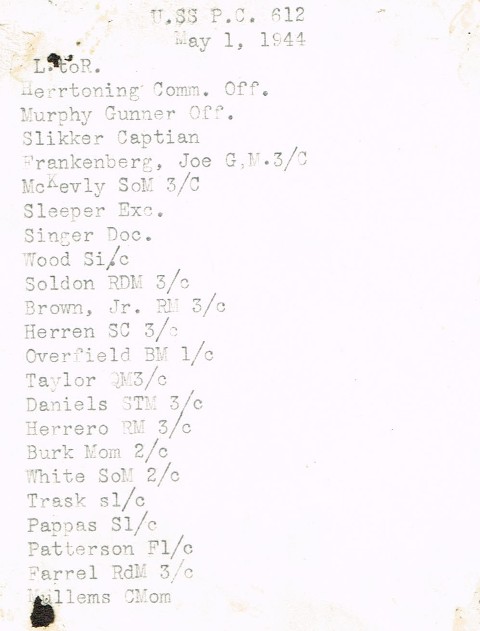 U.SS P.C. 612
May 1, 1944
L.toR.
Herrtoning Comm. Off.
Murphy Gunner Off.
Slikker Captian
Frankenberg, Joe G,M.3/C
McKevly SoM 3/C
Sleeper Exc.
Singer Doc.
Wood S1/c
Soldon RDM 3/c
Brown, Jr. RM 3/c
Herren SC 3/c
Overfield BM 1/c
Taylor QM3/c
Daniels STM 3/c
Herrero RM 3/c
Burk Mom 2/c
White SoM 2/c
Trask s1/c
Pappas S1/c
Patterson F1/c
Farrel RdM 3/c
Mullems CMom